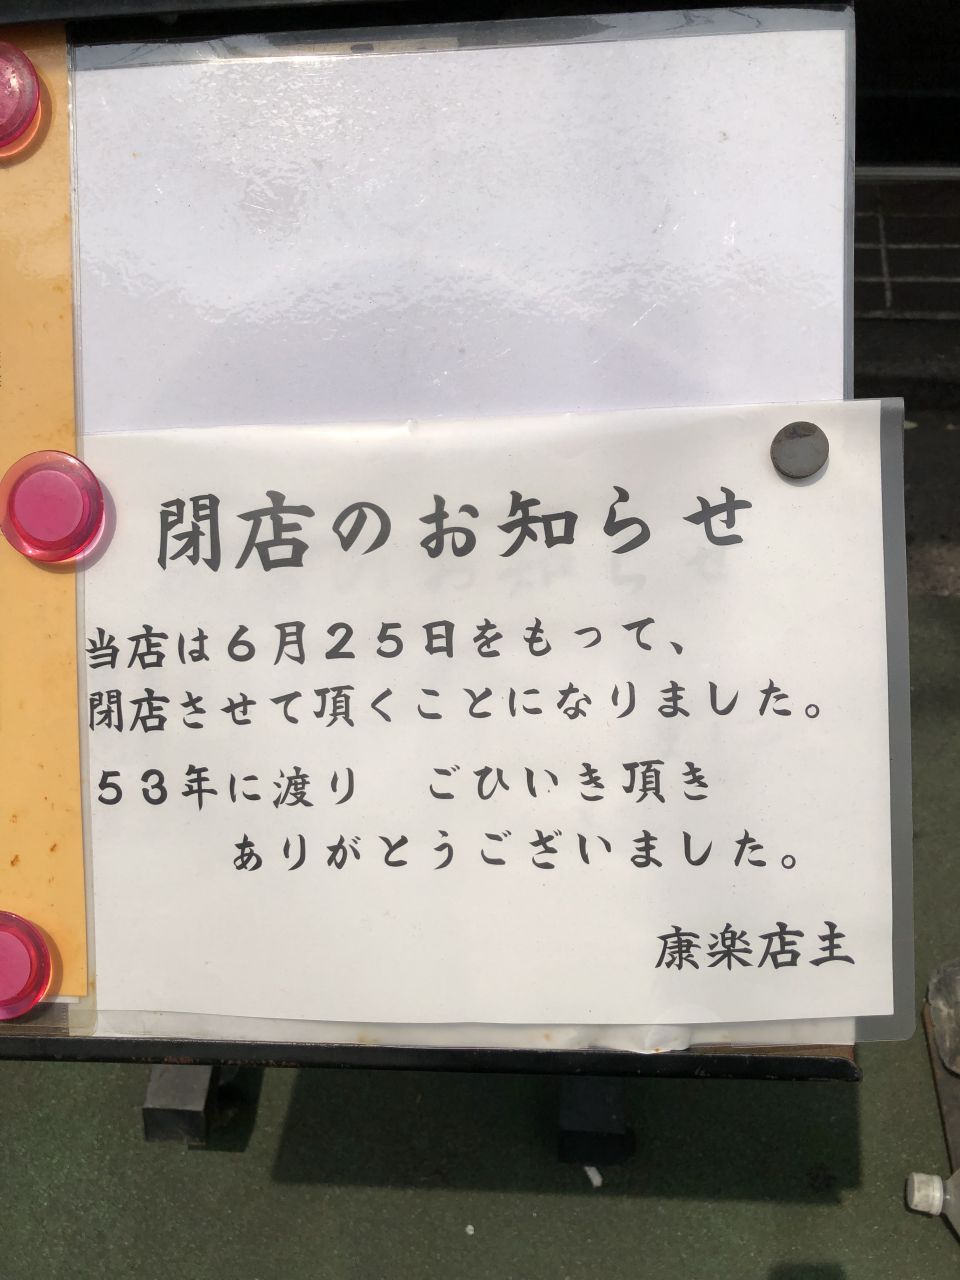 閉店のお知らせ
当店は６月２５日をもって、
閉店させて頂くことになりました。
５３年に渡り　ごひいき頂き
ありがとうございました。
康楽店主